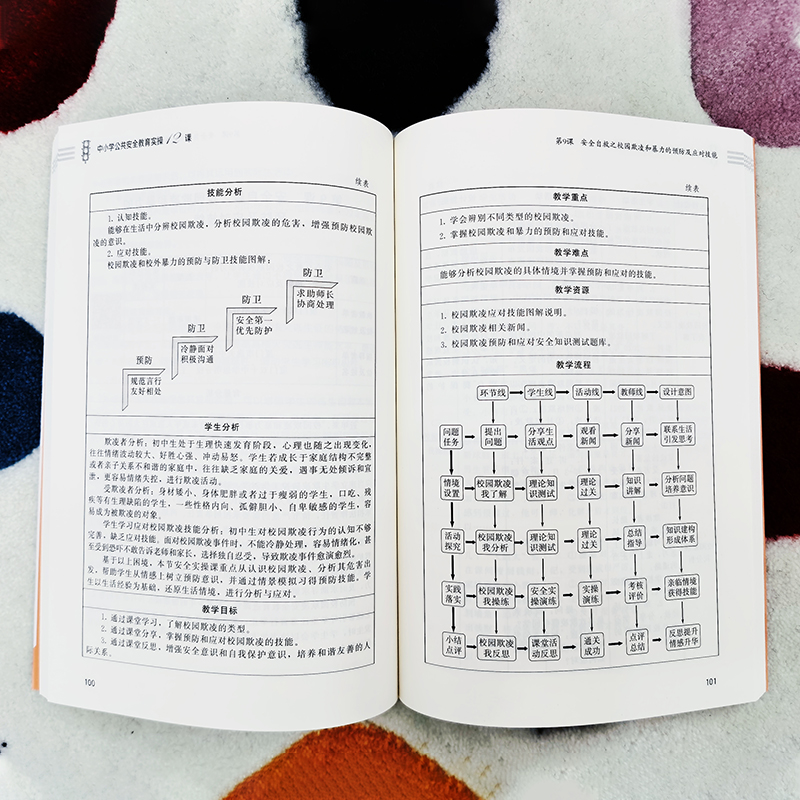 中小学公共安全教育实操12课
续表
技能分析
1. 认知技能。
能够在生活中分辨校园欺凌，分析校园欺凌的危害，增强预防校园欺
凌的意识。
2. 应对技能。
校园欺凌和校外暴力的预防与防卫技能图解：
防卫
求助师长
协商处理
防卫
安全第一
优先防护
防卫
冷静面对
积极沟通
预防
规范言行
友好相处
学生分析
欺凌者分析：初中生处于生理快速发育阶段，心理也随之出现变化，
往往情绪波动较大、好胜心强、冲动易怒。学生若成长于家庭结构不完整
或者亲子关系不和谐的家庭中，往往缺乏家庭的关爱，遇事无处倾诉和宣
泄，更容易情绪失控，进行欺凌活动。
受欺凌者分析：身材矮小、身体肥胖或者过于瘦弱的学生，口吃、残
疾等有生理缺陷的学生，一些性格内向、孤僻胆小、自卑敏感的学生，容
易成为被欺凌的对象。
学生学习应对校园欺凌技能分析：初中生对校园欺凌行为的认知不够
完善，缺乏应对技能。面对校园欺凌事件时，不能冷静处理，容易情绪化，甚
至受到恐吓不敢告诉老师和家长，选择独自忍受，导致欺凌事件愈演愈烈。
基于以上困境，本节安全实操课重点从认识校园欺凌、分析其危害出
发，帮助学生从情感上树立预防意识，并通过情景模拟习得预防技能。学
生以生活经验为基础，还原生活情境，进行分析与应对。
教学目标
1. 通过课堂学习，了解校园欺凌的类型。
2. 通过课堂分享，掌握预防和应对校园欺凌的技能。
3. 通过课堂反思，增强安全意识和自我保护意识，培养和谐友善的人
际关系。
100
第9课 安全自救之校园欺凌和暴力的预防及应对技能
续表
教学重点
1. 学会辨别不同类型的校园欺凌。
2. 掌握校园欺凌和暴力的预防和应对技能。
教学难点
能够分析校园欺凌的具体情境并掌握预防和应对的技能。
教学资源
1. 校园欺凌应对技能图解说明。
2. 校园欺凌相关新闻。
3. 校园欺凌预防和应对安全知识测试题库。
教学流程
环节线 学生线 活动线 教师线 设计意图
问题 提出 分享生 观看 分享 联系生活
任务 问题 活观点 新闻 新闻 引发思考
情境 校园欺凌 理论知 理论 知识 分析问题
设置 我了解 识测试 过关 讲解 培养意识
活动 校园欺凌 理论知 理论 总结 知识建构
探究 我分析 识测试 过关 指导 形成体系
实践 校园欺凌 安全实 实操 考核 亲临情境
落实 我操练 操演练 演练 评价 获得技能
小结 校园欺凌 课堂活 通关 点评 反思提升
点评 我反思 动反思 成功 总结 情感升华
101